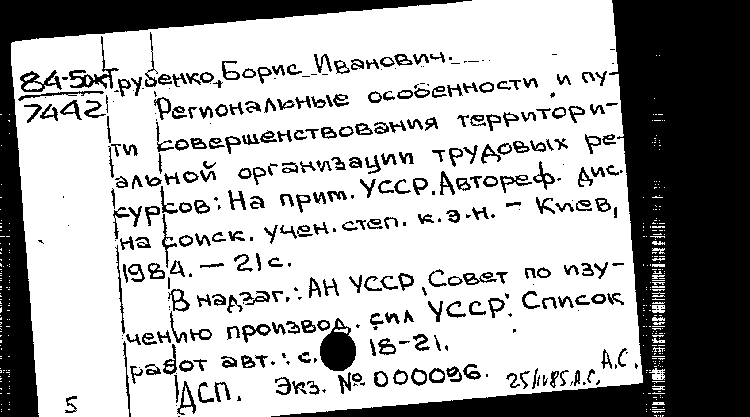 84-5ок Трубенко, Борис Иванович.
7442 Региональные особенности и пу-
ти совершенствования территори-
альной организации трудовых ре-
сурсов: На прим. УССР. Автореф. дис.
на соиск. учен. степ. к.э.н. – Киев,
1984. – 21 с.
В надзаг.: АН УССР, Совет по изу-
чению производ. сил УССР. Список
работ авт.: с. 18-21.
ДСП. Экз. № 000096.
А.С.
5